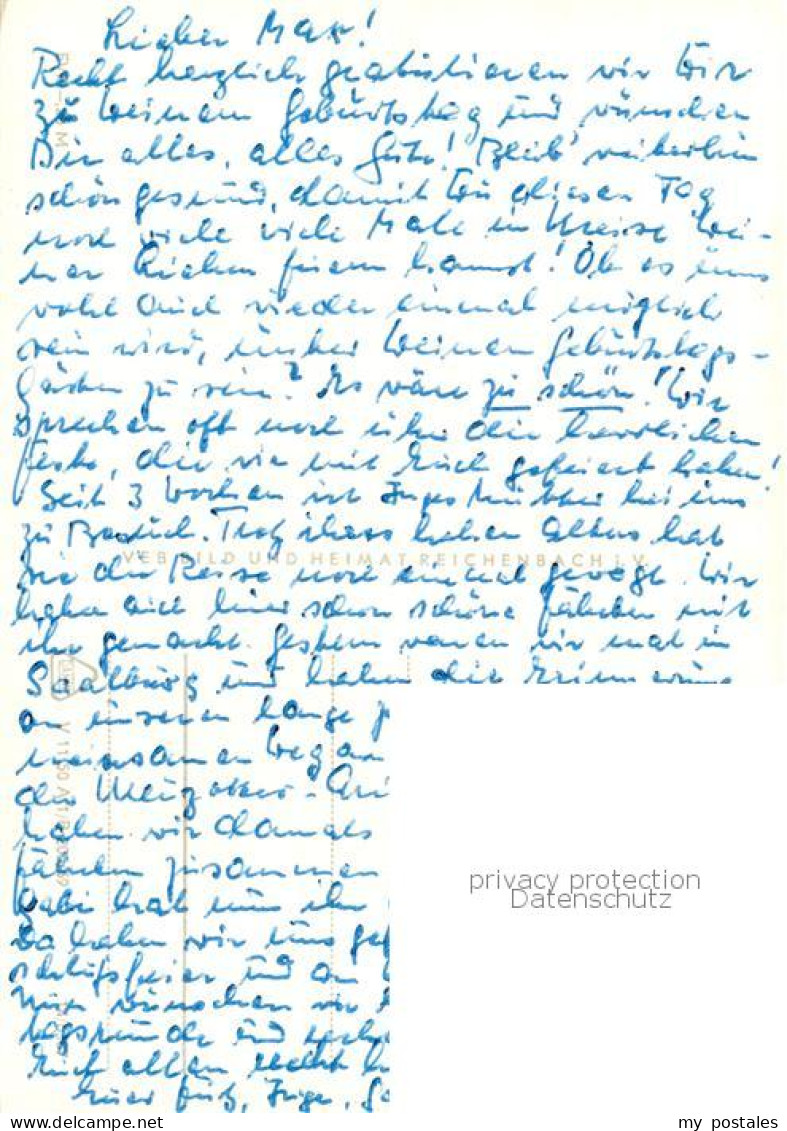 Lieber Max!
Recht herzlich gratulieren wir Dir
zu Deinem Geburtstag und wünschen
Dir alles, alles Gute! Bleib' weiterhin
schön gesund, damit Du diesen Tag
noch viele viele Male im Kreise Dei-
ner Lieben feiern kannst! Ob es uns
wohl auch wieder einmal möglich
sein wird, unter Deinen Geburtstags-
gästen zu sein? Es wäre zu schön! Wir
sprechen oft noch über die herrlichen
Feste, die wir mit Euch gefeiert haben!
Seit 3 Wochen ist Inges Mutter bei uns
zu Besuch. Trotz ihres hohen Alters hat
VEB BILD UND HEIMAT REICHENBACH i. V.
sie die Reise noch einmal gewagt. Wir
haben auch hier schon schöne Fahrten mit
ihr gemacht. Gestern waren wir mal in
Saalburg und haben die Erinnerung
an unseren lange
meinsamen Weg an
der
haben wir damals
Fahrten zusammen
Gabi hat nun ihr
Da haben wir uns
schlußfeier und am
Nun wünschen wir
tagsrunde und
Euch allen recht
Euer Inge,
V 11 50 A 1/B
privacy protection
Datenschutz
my_postales